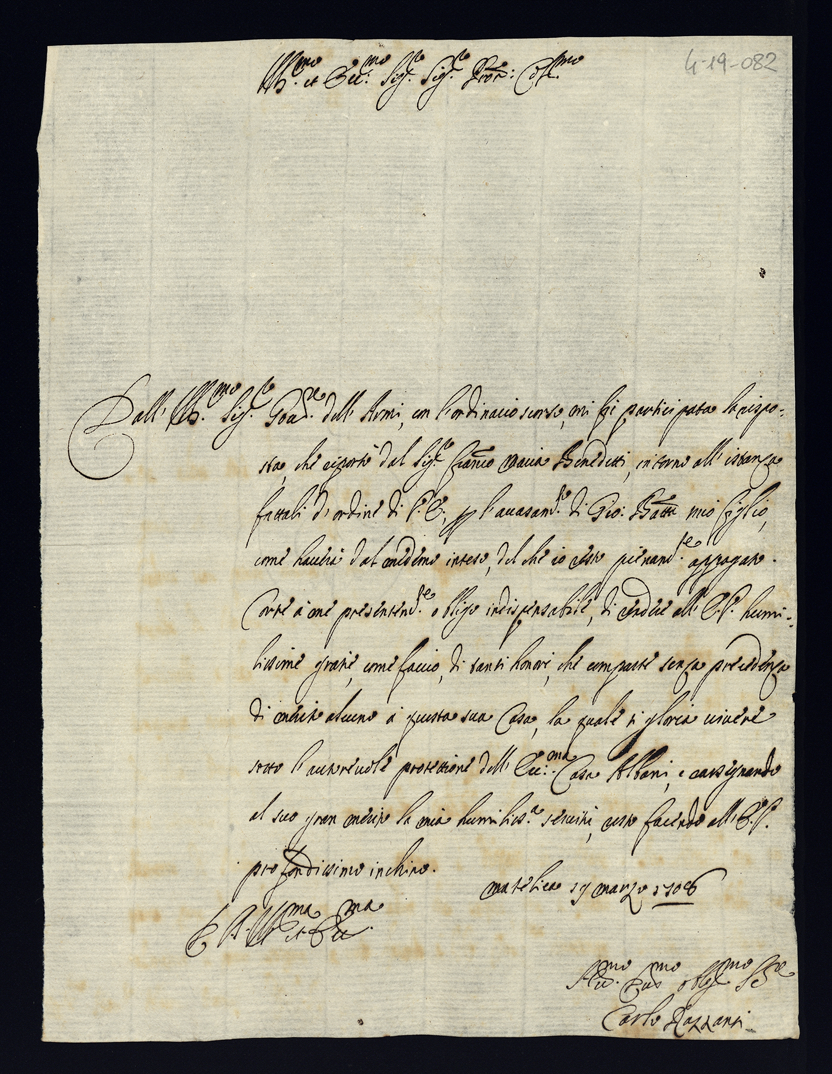 4-19-082
Ill.mo et Ecc.mo Sig.re Sig.re Pron: Col.mo
Dall' Ill.mo Sig.re dell' Armi, con l'ordinario scorso, mi fù participata la rispo-
sta, che riportò dal Sig.re Franco Maria Benedetti, intorno all' istanza
fattali d'ordine di V.E., p l'avasam.to di Gio: Batta mio figlio,
come haverà dal medmo inteso, del che io resto pienam.te appagato.
Corre à me presentem.te obligo indispensabile, di rendere all' E.V. humi-
lissime grazie, come faccio, di tanti honori, che comparte senza precedenza
di merito alcuno à questa sua Casa, la quale si gloria vivere
sotto l'autorevole protettione dell' Ecc.ma Casa Albani, e rassegnando
al suo gran merito la mia humiliss.a servitù, resto facendo all' E.V.
profondissimo inchino.
Matelica 19 marzo 1706
D V. Ill.ma et Ecc.ma
Hu.mo obbl.mo Se.re
Carlo Razzanti